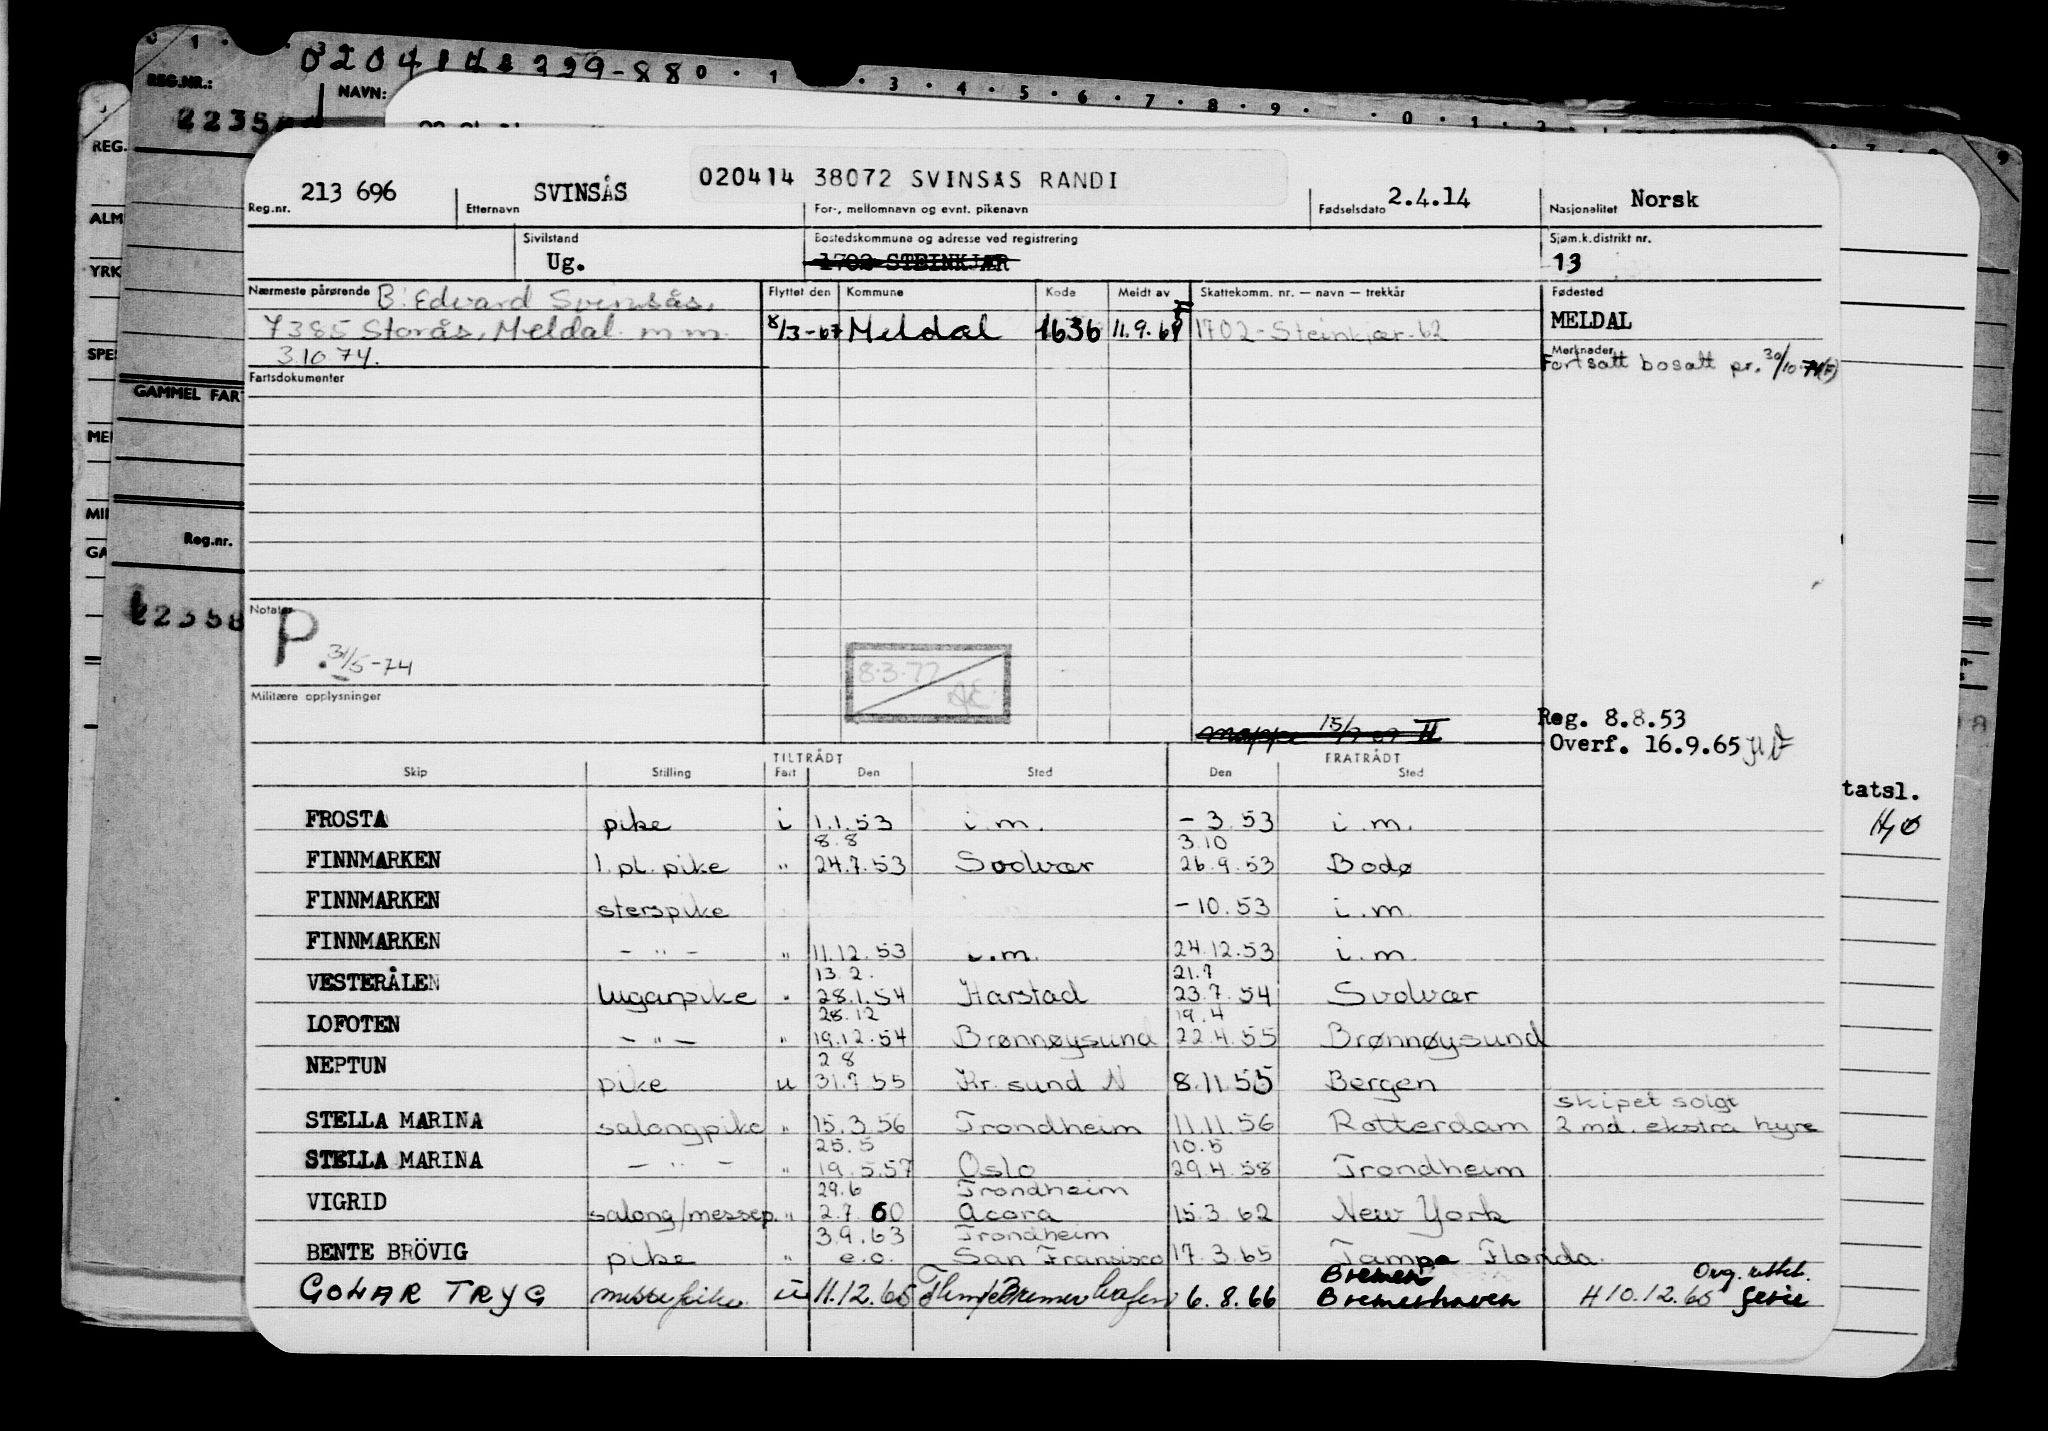 0 2 0 4 1 4 3 3 9 9 - 8 8
REG.NR.:
NAVN:
2235
REG.
ALM
YRK
SPE
GAMMEL FAR
Reg.nr.
22358
020414 38072 SVINSÅS RANDI
Reg.nr. 213 696 Etternavn SVINSÅS For-, mellomnavn og evnt. pikenavn Fødselsdato 2.4.14 Nasjonalitet Norsk
Sivilstand Ug. Bostedskommune og adresse ved registrering 1702 STEINKJÆR Sjøm.k.distrikt nr. 13
Nærmeste pårørende B: Edvard Svinsås,
7385 Storås, Meldal m.m.
3.10 74.
Flyttet den Kommune Kode Meldt av Skattekomm. nr. — navn — trekkår Fødested
8/3-67 Meldal 1636 11.9.69 1702 - Steinkjær - 62 MELDAL
Merknader
Fortsatt bosatt pr. 30/10-74(F)
Fartsdokumenter
Notater
P. 31/5-74
8.3.77
Militære opplysninger
mappe 15/9 69 II
Reg. 8.8.53
Overf. 16.9.65
tatsl.
TILTRÅDT FRATRÅDT
Skip Stilling Fart Den Sted Den Sted
FROSTA pike i 1.1.53 i.m. - 3.53 i.m.
8.8 3.10
FINNMARKEN 1. pl. pike " 24.7.53 Svolvær 26.9.53 Bodø
FINNMARKEN sterspike - 10.53 i.m.
FINNMARKEN - " - " 11.12.53 i.m. 24.12.53 i.m.
13.2. 21.7
VESTERÅLEN lugarpike " 28.1.54 Harstad 23.7.54 Svolvær
28.12 19.4
LOFOTEN - " - " 19.12.54 Brønnøysund 22.4.55 Brønnøysund
2 8
NEPTUN pike u 31.7.55 Kr. sund N 8.11.55 Bergen
skipet solgt
STELLA MARINA salongpike " 15.3.56 Trondheim 11.11.56 Rotterdam 2 md. ekstra hyre
25.5 10.5
STELLA MARINA - " - " 19.5.57 Oslo 29.4.58 Trondheim
29.6 Trondheim
VIGRID salong/messep. " 2.7.60 Acora 15.3.62 New York
3.9.63 Trondheim
BENTE BRÖVIG pike " e.o. San Fransisco 17.3.65 Tampa Florida.
Bremen
GOHAR TRYG messepike u 11.12.65 Bremerhafen 6.8.66 Bremerhaven H 10.12.65